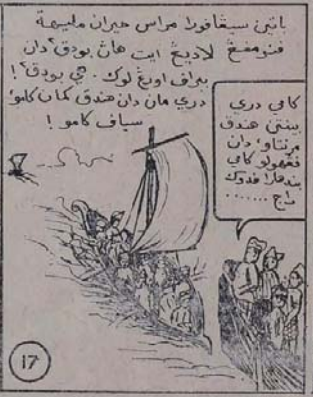 باتين سيڠاڤورا مراس حيران مليهة
ڤنومڤڠ لاديڠ ايت هاڽ بودق٢ دان
ببراڤ اورڠ لوك. هي بودق٢!
دري مان دان هندق كمان كامو؟
سياڤ كامو!
كامي دري
بنتن هندق
مرنتاو دان
ڤڠهولو كامي
بندهارا ڤدوك
راج .......
17